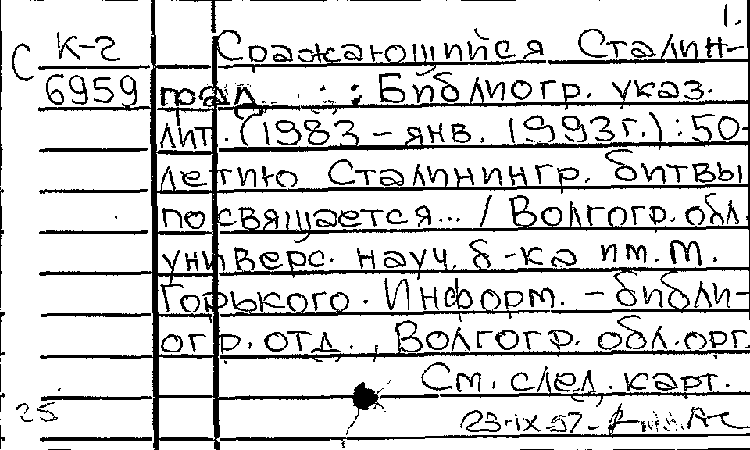 1.
С К-2 Сражающийся Сталин-
6959 град : Библиогр. указ.
лит. (1983 – янв. 1993г.) : 50-
летию Сталинингр. битвы
посвящается... / Волгогр. обл.
универс. науч. б-ка им. М.
Горького. Информ. – библи-
огр. отд., Волгогр. обл. орг
См. след. карт.
25 23-IX-97-